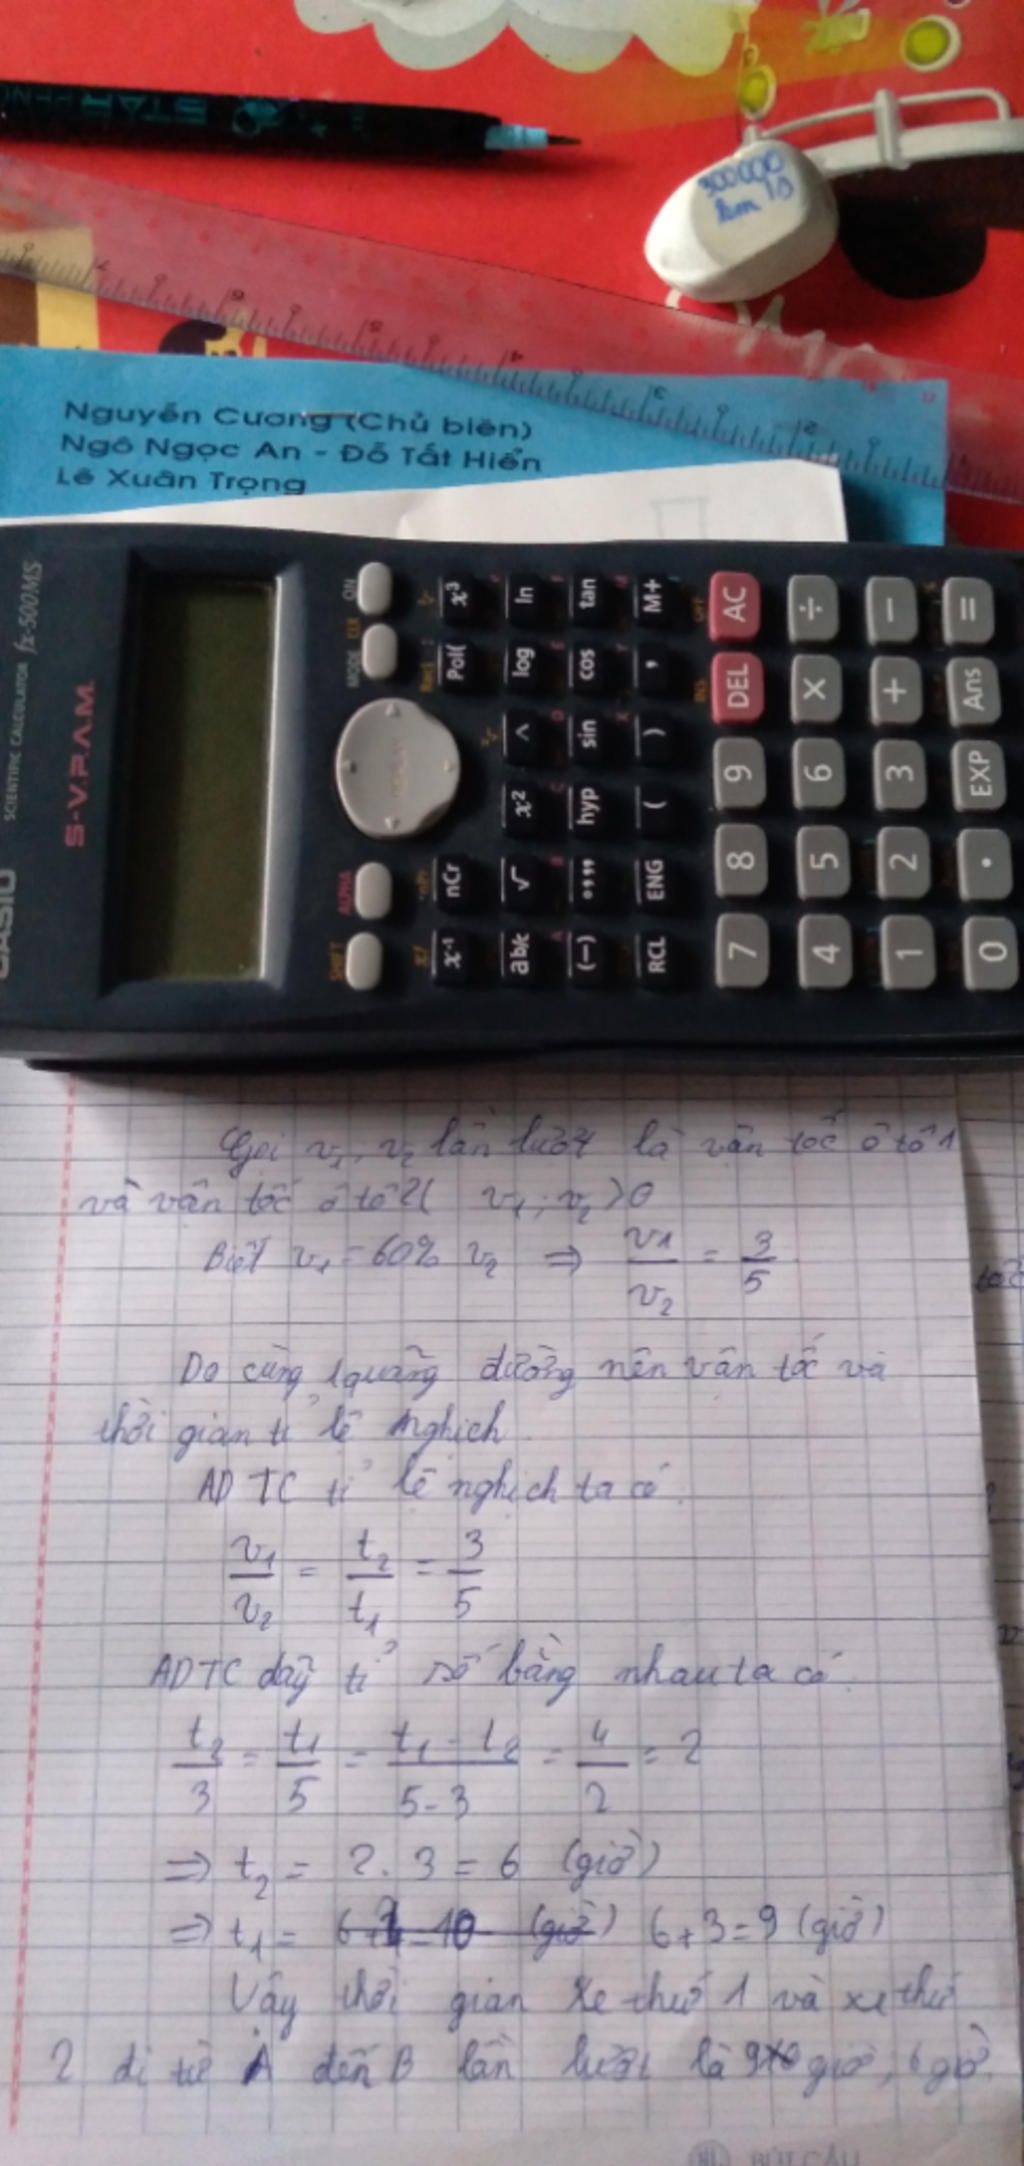 300000
km/s
Nguyễn Cương (Chủ biên)
Ngô Ngọc An - Đỗ Tất Hiển
Lê Xuân Trọng
CASIO
SCIENTIFIC CALCULATOR fx-500MS
S-V.P.A.M.
SHIFT ALPHA MODE CLR ON
x! nPr Rec( :
x⁻¹ nCr Pol( x³
ab/c √ x² ^ log ln
(−) °,,, hyp sin cos tan
RCL ENG ( ) , M+
7 8 9 DEL AC
4 5 6 × ÷
1 2 3 + −
0 . EXP Ans =
Gọi v₁, v₂ lần lượt là vận tốc ô tô 1
và vận tốc ô tô 2 ( v₁; v₂ ) 0
Biết v₁ = 60% v₂ ⇒ v₁/v₂ = 3/5
Do cùng 1 quãng đường nên vân tốc và
thời gian tỉ lệ nghịch
ADTC tỉ lệ nghịch ta có
v₁/v₂ = t₂/t₁ = 3/5
ADTC dãy tỉ số bằng nhau ta có
t₂/3 = t₁/5 = t₁ - t₂/5-3 = 4/2 = 2
⇒ t₂ = 2.3 = 6 (giờ)
⇒ t₁ = 6+3=9 (giờ)
Vậy thời gian xe thứ 1 và xe thứ
2 đi từ A đến B lần lượt là 9 giờ, 6 giờ.